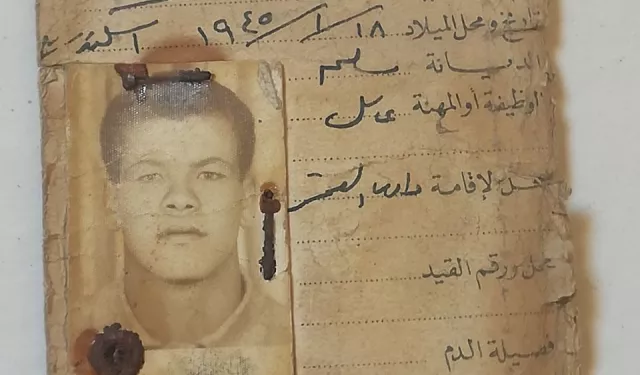 تاريخ ومحل الميلاد ١٨ / ١ / ١٩٤٥
الديانة مسلم
الوظيفة أو المهنة عامل
محل الإقامة
محل ورقم القيد
فصيلة الدم